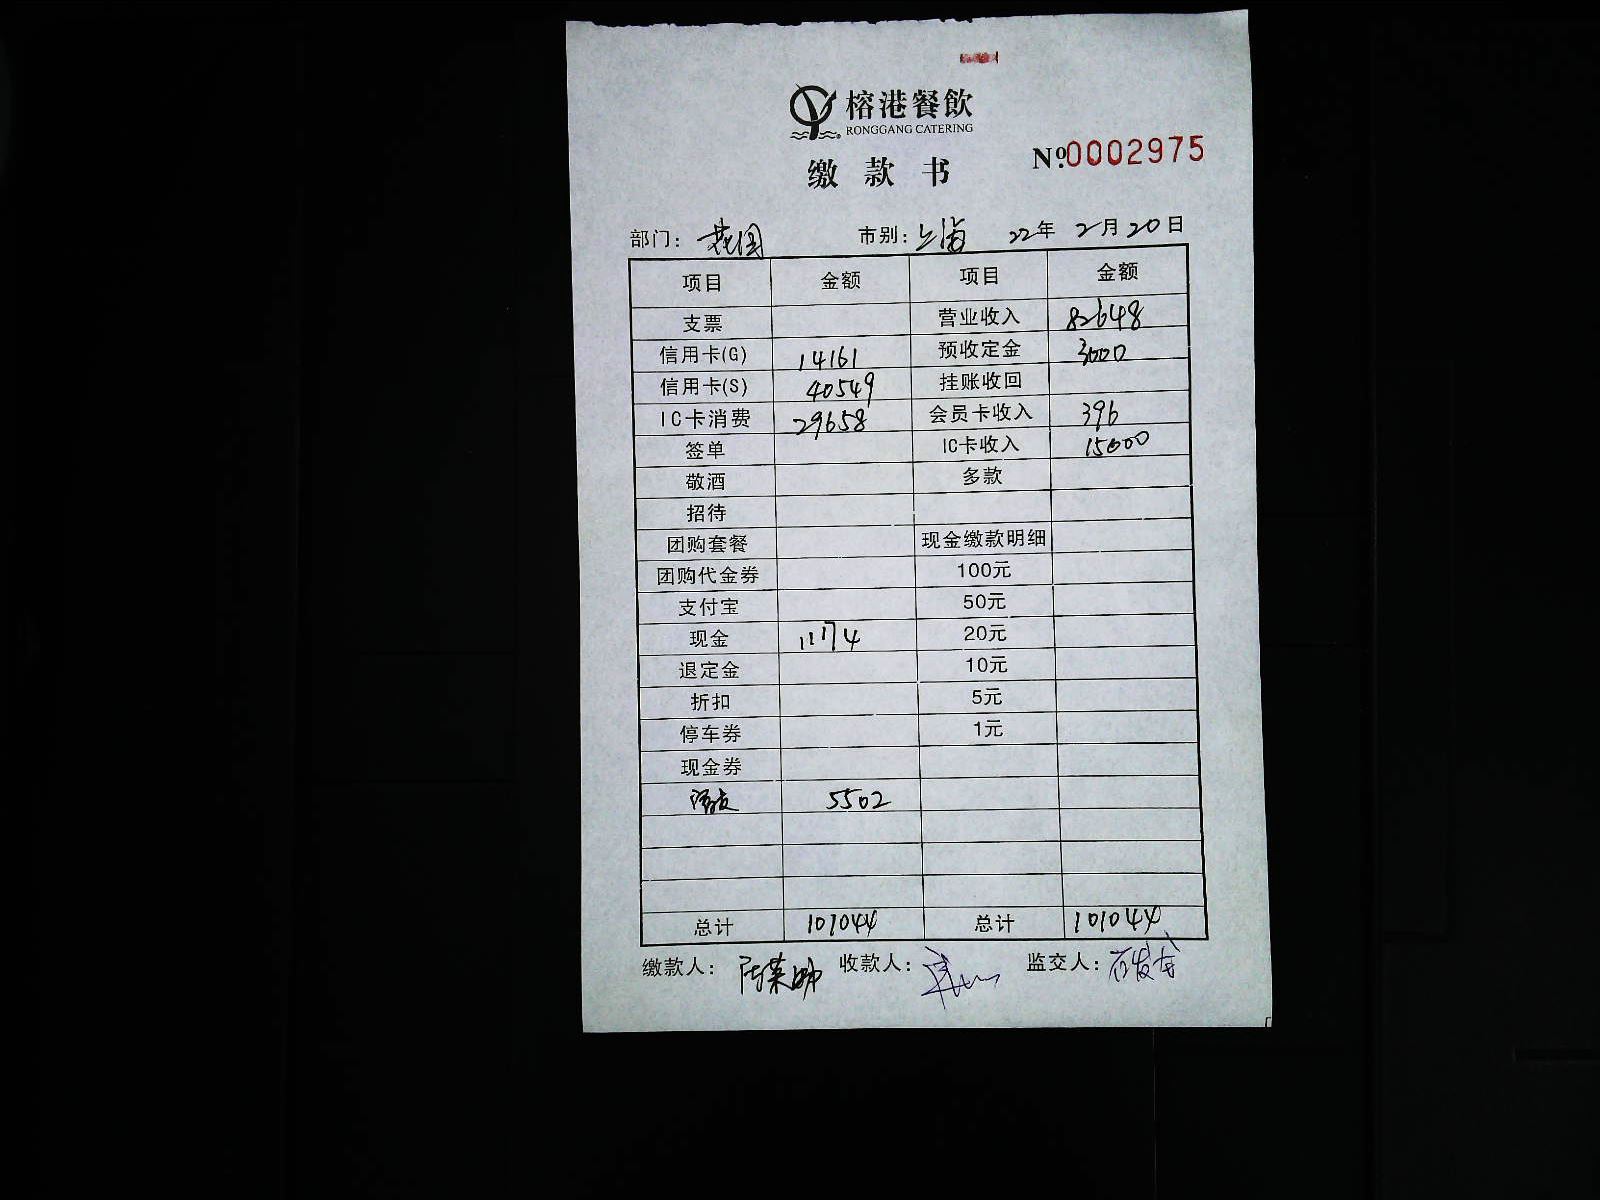 榕港餐飲
RONGGANG CATERING
缴款书
Nº 0002975
部门：花园 市别：上海 22年 2月 20日
项目 金额 项目 金额
支票 营业收入 82648
信用卡(G) 14161 预收定金 3000
信用卡(S) 40549 挂账收回
IC卡消费 29658 会员卡收入 396
签单 IC卡收入 15000
敬酒 多款
招待
团购套餐 现金缴款明细
团购代金券 100元
支付宝 50元
现金 11174 20元
退定金 10元
折扣 5元
停车券 1元
现金券
5502
总计 101044 总计 101044
缴款人： 收款人： 监交人：